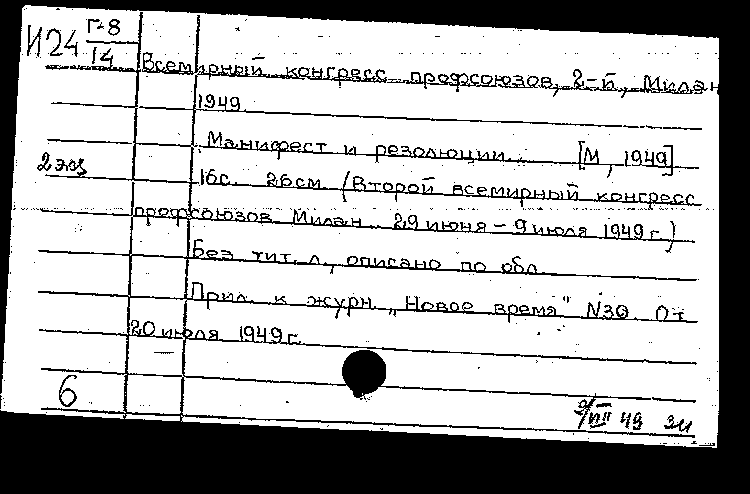 И24 Г-8
14
Всемирный конгресс профсоюзов, 2-й, Милан
1949.
Манифест и резолюции. [М, 1949]
2 экз
16с. 26см. (Второй всемирный конгресс
профсоюзов Милан 29 июня - 9 июля 1949 г)
Без тит. л., описано по обл.
Прил. к журн. „Новое время" N30 от
20 июля 1949 г.
6
VIII 49